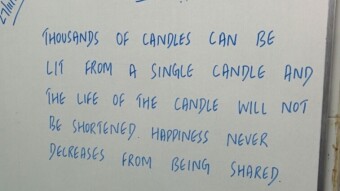 THOUSANDS OF CANDLES CAN BE
LIT FROM A SINGLE CANDLE AND
THE LIFE OF THE CANDLE WILL NOT
BE SHORTENED. HAPPINESS NEVER
DECREASES FROM BEING SHARED.